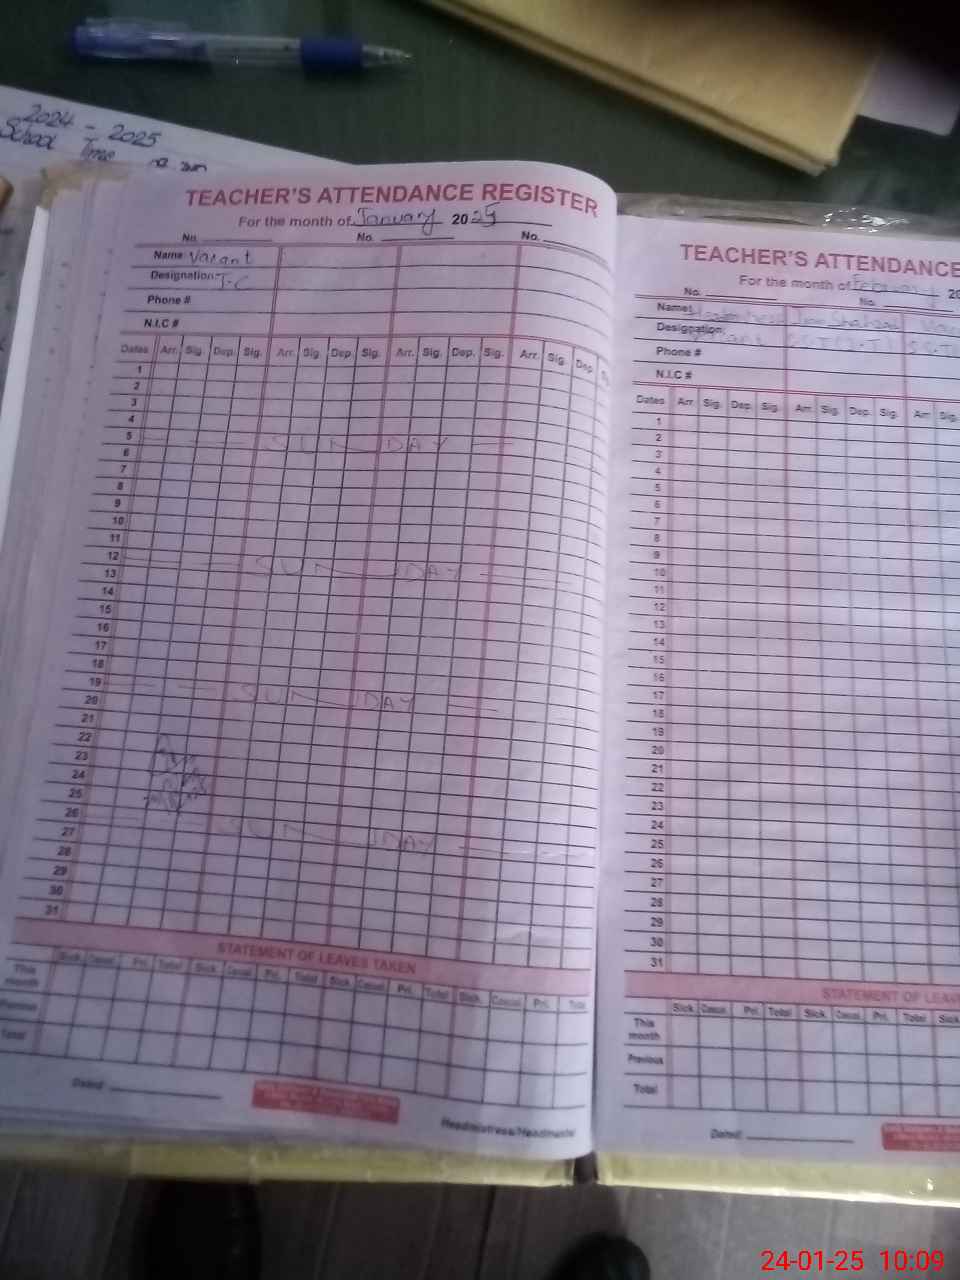 2024 - 2025
School Time
TEACHER'S ATTENDANCE REGISTER
For the month of January 2025
No. No. No.
Name: Vacant
Designation: T-C
Phone #
N.I.C #
Dates Arr. Sig. Dep. Sig. Arr. Sig. Dep. Sig. Arr. Sig. Dep. Sig. Arr. Sig. Dep.
1
2
3
4
5 SUNDAY
6
7
8
9
10
11
12 SUNDAY
13
14
15
16
17
18
19 SUNDAY
20
21
22
23
24
25
26 SUNDAY
27
28
29
30
31
STATEMENT OF LEAVES TAKEN
Sick. Casual. Pri. Total Sick. Casual. Pri. Total Sick. Casual. Pri. Total Sick. Casual. Pri. Total
This month
Previous
Total
Dated
Headmistress/Headmaster
TEACHER'S ATTENDANCE
For the month of February 20
No. No.
Name:
Designation:
Phone #
N.I.C #
Dates Arr. Sig. Dep. Sig. Arr. Sig. Dep. Sig. Arr. Sig.
1
2
3
4
5
6
7
8
9
10
11
12
13
14
15
16
17
18
19
20
21
22
23
24
25
26
27
28
29
30
31
STATEMENT OF LEAV
Sick. Casual. Pri. Total Sick. Casual. Pri. Total Sick
This month
Previous
Total
Dated
24-01-25 10:09